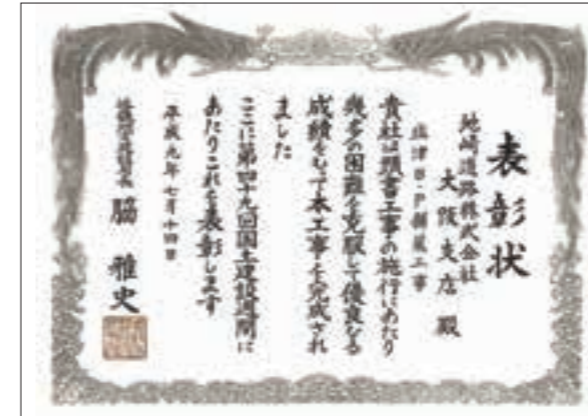 表彰状
地崎道路株式会社
大阪支店 殿
B・P舗装工事
貴社は頭書工事の施行にあたり
幾多の困難を克服して優良なる
成績をもって本工事を完成され
ました
ここに第四十九回国土建設週間に
あたりこれを表彰します
平成九年七月十四日
脇 雅史